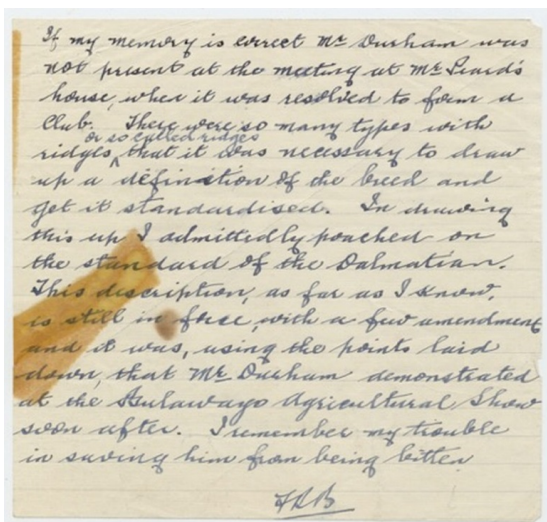 If my memory is correct Mr Durham was
not present at the meeting at Mr Seard's
house, when it was resolved to form a
Club. There were so many types with
or so called ridges
ridges, that it was necessary to draw
up a definition of the breed and
get it standardised. In drawing
this up I admittedly poached on
the standard of the Dalmatian.
This description, as far as I know,
is still in force, with a few amendment
and it was, using the points laid
down, that Mr Durham demonstrated
at the Bulawayo Agricultural Show
soon after. I remember my trouble
in saving him from being bitten